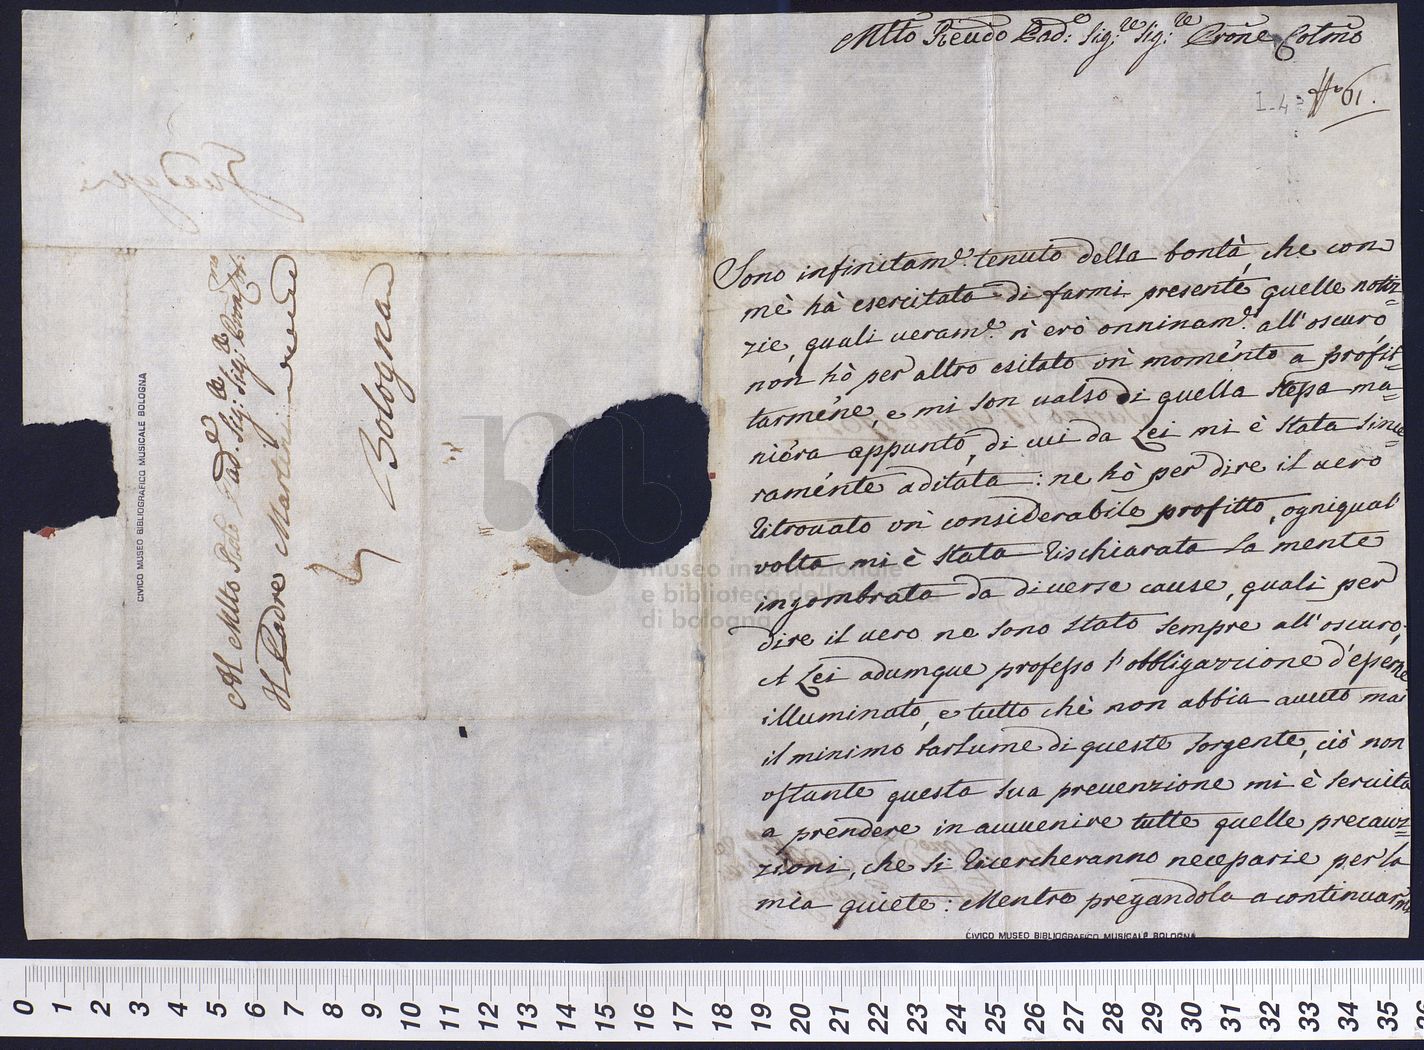 Mlto Reudo Pad:e Sig:re Sig:re Prone Colmo
I-4
No 61.
Sono infinitam.e tenuto della bontà, che con
mè hà esercitata di farmi presente quelle notiz=
zie, quali ueram.e n' erò onninam.e all'oscuro
non hò per altro esitato un momento a profit=
tarmene, e mi son ualso di quella stessa ma=
niera appunto, di cui da Lei mi è stata since=
ramente aditata: ne hò per dire il uero
ritrouato un considerabile profitto, ogniqual
volta mi è stata rischiarata la mente
ingombrata da diuerse cause, quali per
dire il uero ne sono stato sempre all'oscuro.
A Lei adumque professo l'obbligazzione d'essere
illuminato, e tutto chè non abbia auuto mai
il minimo barlume di queste sorgente, ciò non
ostante questa sua preuenzione mi è seruita
a prendere in auuenire tutte quelle precauz=
zioni, che si ricercheranno necessarie per la
mia quiete: Mentre pregandola a continuarmi
Al Mlto Rdo Pad.e Sig:re Sig:re Pron Colmo
Il Padre Martini
Bologna
CIVICO MUSEO BIBLIOGRAFICO MUSICALE BOLOGNA
CIVICO MUSEO BIBLIOGRAFICO MUSICALE BOLOGNA
museo internazionale
e biblioteca della
di bologna
0 1 2 3 4 5 6 7 8 9 10 11 12 13 14 15 16 17 18 19 20 21 22 23 24 25 26 27 28 29 30 31 32 33 34 35